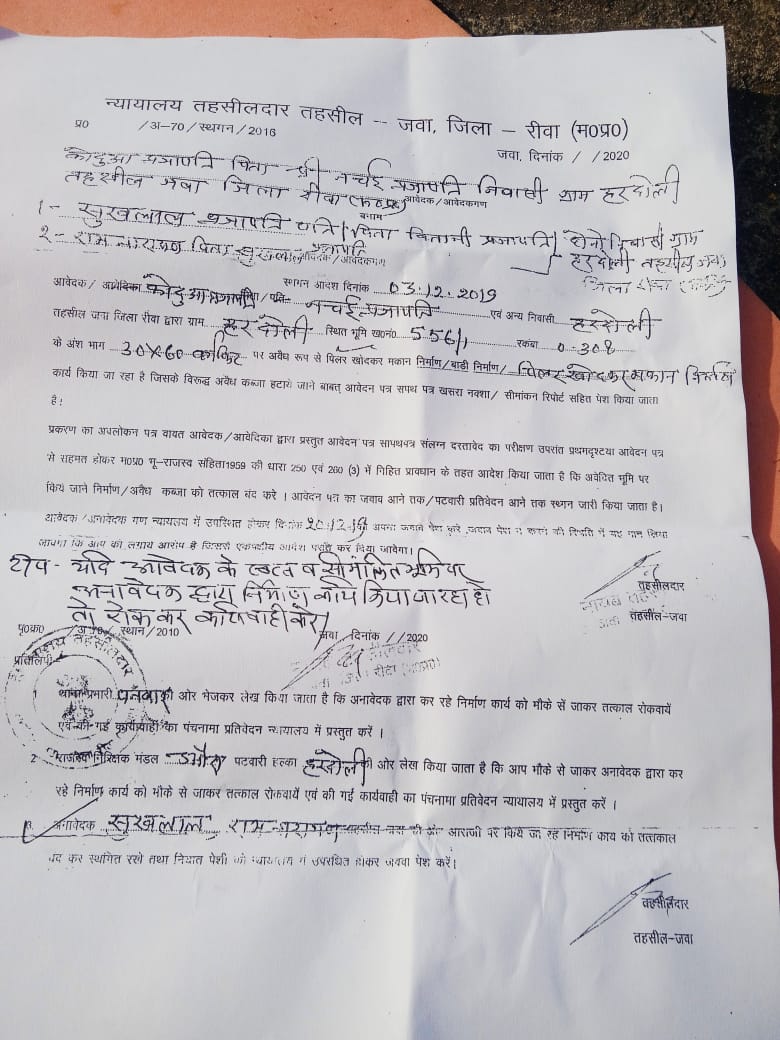 न्यायालय तहसीलदार तहसील -- जवा, जिला - रीवा (म०प्र०)
प्र० /अ-70/स्थगन/2016
जवा, दिनांक / /2020
कोदुआ प्रजापति पिता श्री नचई प्रजापति निवासी ग्राम हरदोली
तहसील जवा जिला रीवा आवेदक/आवेदकगण
बनाम
1- सुखलाल प्रजापति पिता चितानी प्रजापति दोनो निवासी ग्राम
2- राम नारायण पिता सुखलाल प्रजापति हरदोली तहसील जवा
जिला रीवा
स्थगन आदेश दिनांक 03.12.2019
आवेदक/ कोदुआ प्रजापति नचई प्रजापति एवं अन्य निवासी हरदोली
तहसील जवा जिला रीवा द्वारा ग्राम हरदोली स्थित भूमि ख०नं० 556/1 रकबा 0.308
के अंश भाग 30X60 पर अवैध रूप से पिलर खोदकर मकान निर्माण/बाडी निर्माण/ पिलर खोदकर मकान निर्माण
कार्य किया जा रहा है जिसके विरूद्ध अवैध कब्जा हटाये जाने बाबत् आवेदन पत्र सपथ पत्र खसरा नक्शा/ सीमांकन रिपोर्ट सहित पेश किया जाता
है।
प्रकरण का अपलोकन पत्र वायत आवेदक/आवेदिका द्वारा प्रस्तुत आवेदन पत्र सापथपत्र संलग्न दस्तावेद का परीक्षण उपरांत प्रथमदृष्टया आवेदन पत्र
से सहमत होकर म०प्र० भू-राजस्व संहिता1959 की धारा 250 एवं 260 (3) में निहित प्रावधान के तहत आदेश किया जाता है कि अवेदित भूमि पर
किये जाने निर्माण/अवैध कब्जा को तत्काल बंद करे । आवेदन पत्र का जवाब आने तक/पटवारी प्रतिवेदन आने तक स्थगन जारी किया जाता है।
आवेदक/अनावेदक गण न्यायालय में उपस्थित होकर दिनांक 20.12.19 अपना जवाब पेश करे
जायेगा कि आप को लगाये आरोप है जिससे एकपक्षीय आदेश कर दिया जावेगा।
टीप - यदि आवेदक के स्वत्व व भूमि पर
अनावेदक द्वारा निर्माण कार्य किया जा रहा हो
तो रोक कर कार्यवाही करे।
तहसीलदार
तहसील-जवा
पृ०क्र० /अ-70/स्थान/2010 जवा, दिनांक / /2020
प्रतिलिपी
1 थाना प्रभारी पनवार की ओर भेजकर लेख किया जाता है कि अनावेदक द्वारा कर रहे निर्माण कार्य को मौके से जाकर तत्काल रोकवायें
एवं की गई कार्यवाही का पंचनामा प्रतिवेदन न्यायालय में प्रस्तुत करें ।
2 राजस्व निरिक्षक मंडल पटवारी हल्का हरदोली की ओर लेख किया जाता है कि आप मौके से जाकर अनावेदक द्वारा कर
रहे निर्माण कार्य को मौके से जाकर तत्काल रोकवायें एवं की गई कार्यवाही का पंचनामा प्रतिवेदन न्यायालय में प्रस्तुत करें ।
3. अनावेदक सुखलाल राम नारायण आराजी पर किये जा रहे निर्माण कार्य को तत्तकाल
बंद कर स्थगित रखे तथा नियात पेशी को न्यायालय में उपस्थित होकर जवाब पेश करें।
तहसीलदार
तहसील-जवा